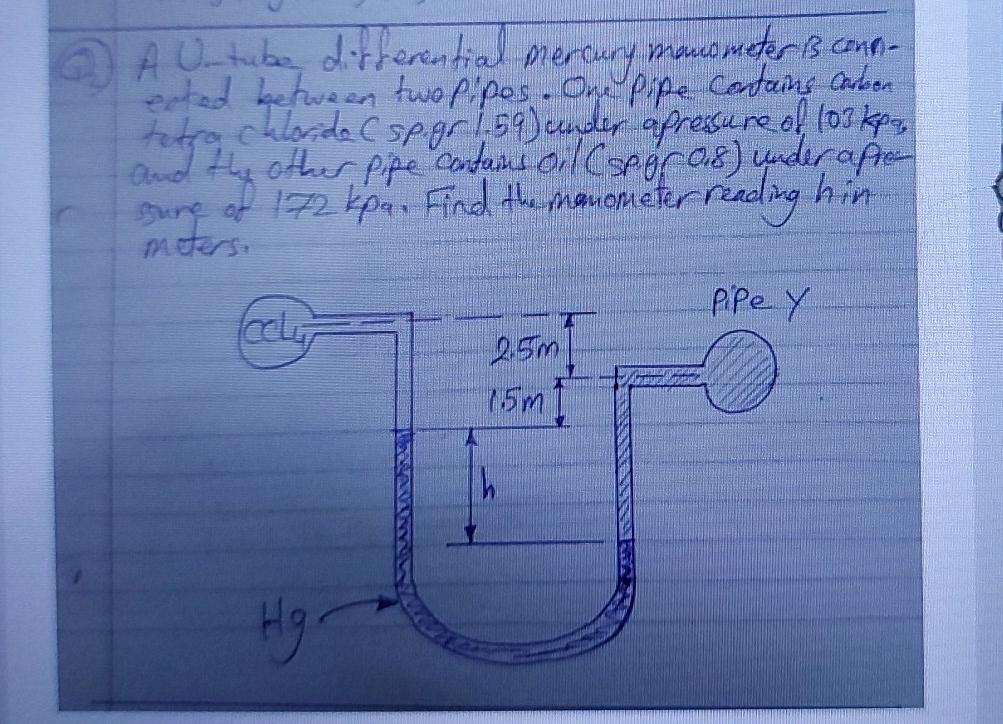 Q) A U-tube differential mercury manometer is conn-
ected between two pipes. One pipe contains carbon
tetra chloride (sp.gr 1.59) under a pressure of 103 kpa
and the other pipe contains oil (sp.gr 0.8) under a pre-
ssure of 172 kpa. Find the manometer reading h in
meters.
pipe Y
ccl4
2.5m
1.5m
h
Hg